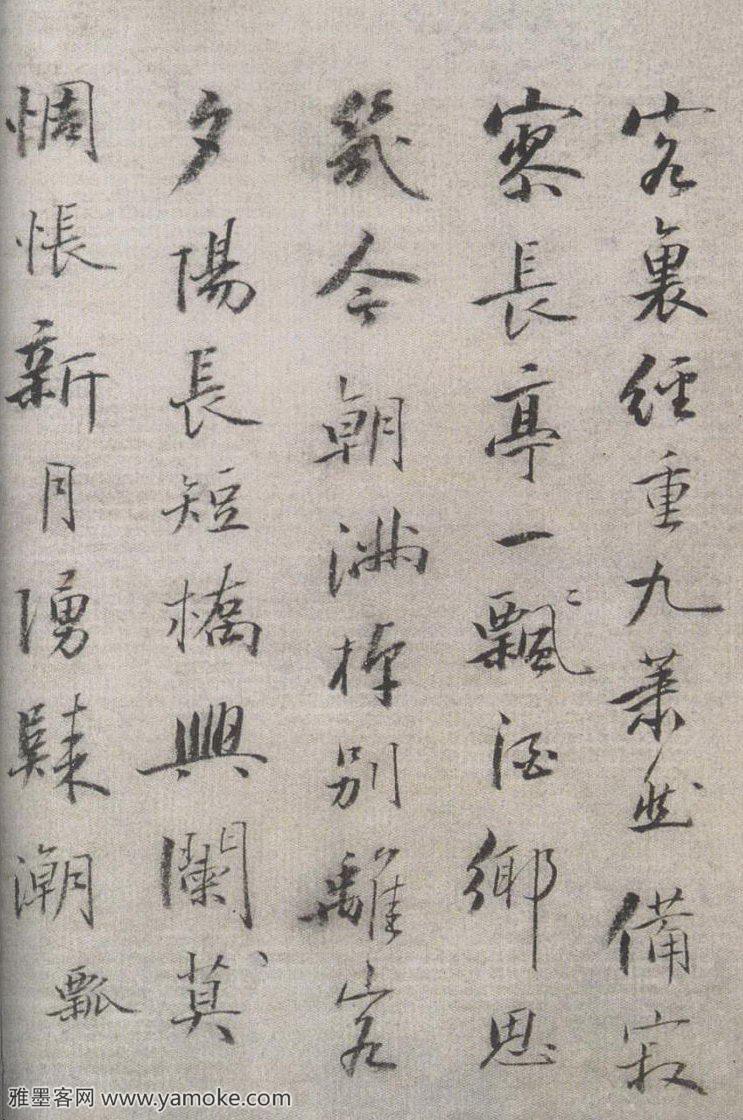 客裏經重九蕭然備寂
寥長亭一飄酒鄉思
幾今朝滿棹別離客
夕陽長短橋興闌莫
惆悵新月湧潮瓢
雅墨客网 www.yamoke.com